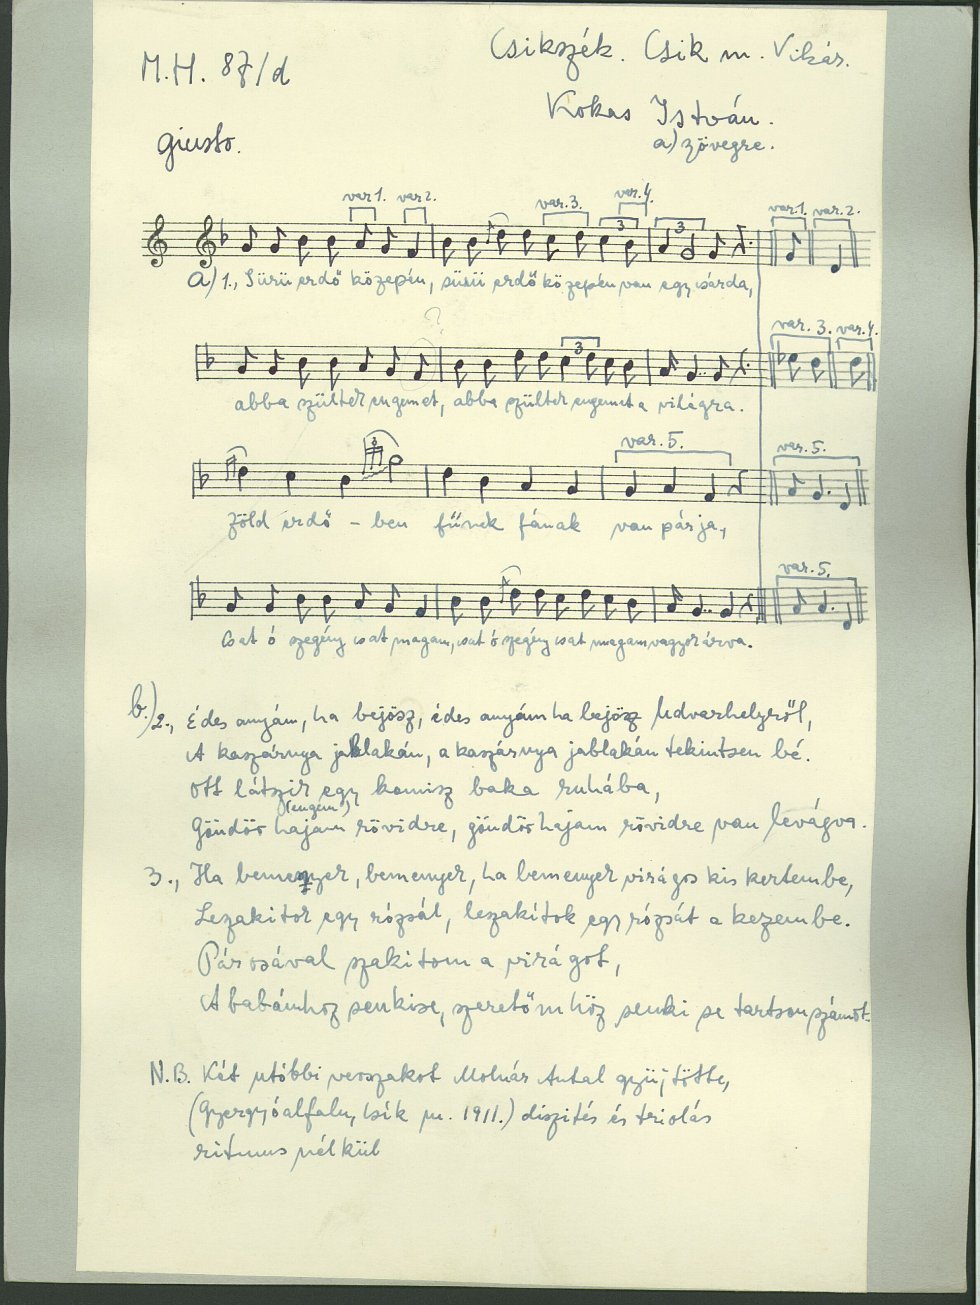 M.H. 87/d
Csikszék. Csik m. Vikár.
Kokas István.
a) szövegre.
giusto.
var 1. var 2. var. 3. var. 4. var 1. var. 2.
3 3
a) 1., Sürü erdő közepén, sürü erdő közepén van egy csárda,
?
3
var. 3. var. 4.
abba szültek engemet, abba szültek engemet a világra.
3
var. 5. var. 5.
zöld erdő - ben fűnek fának van párja,
var. 5.
csat ó szegény csat magam, csat ó szegény csat magam vagyok árva.
b.) 2., Édes anyám, ha bejösz, édes anyám ha bejösz Udvarhelyről,
A kaszárnya jablakán, a kaszárnya jablakán tekintsen bé.
Ott látszik egy komisz baka ruhába,
(engem)
Göndör hajam rövidre, göndör hajam rövidre van levágva.
3., Ha bemenyek, bemenyek, ha bemenyek virágos kis kertembe,
Leszakitok egy rózsát, leszakítok egy rózsát a kezembe.
Párosával szakitom a virágot,
A babámhoz senkise, szeretőmhöz senki se tartson számot.
N.B. Két utóbbi verszakot Molnár Antal gyüjtötte,
(Gyergyóalfalu, Csík m. 1911.) diszités és triolás
ritmus nélkül